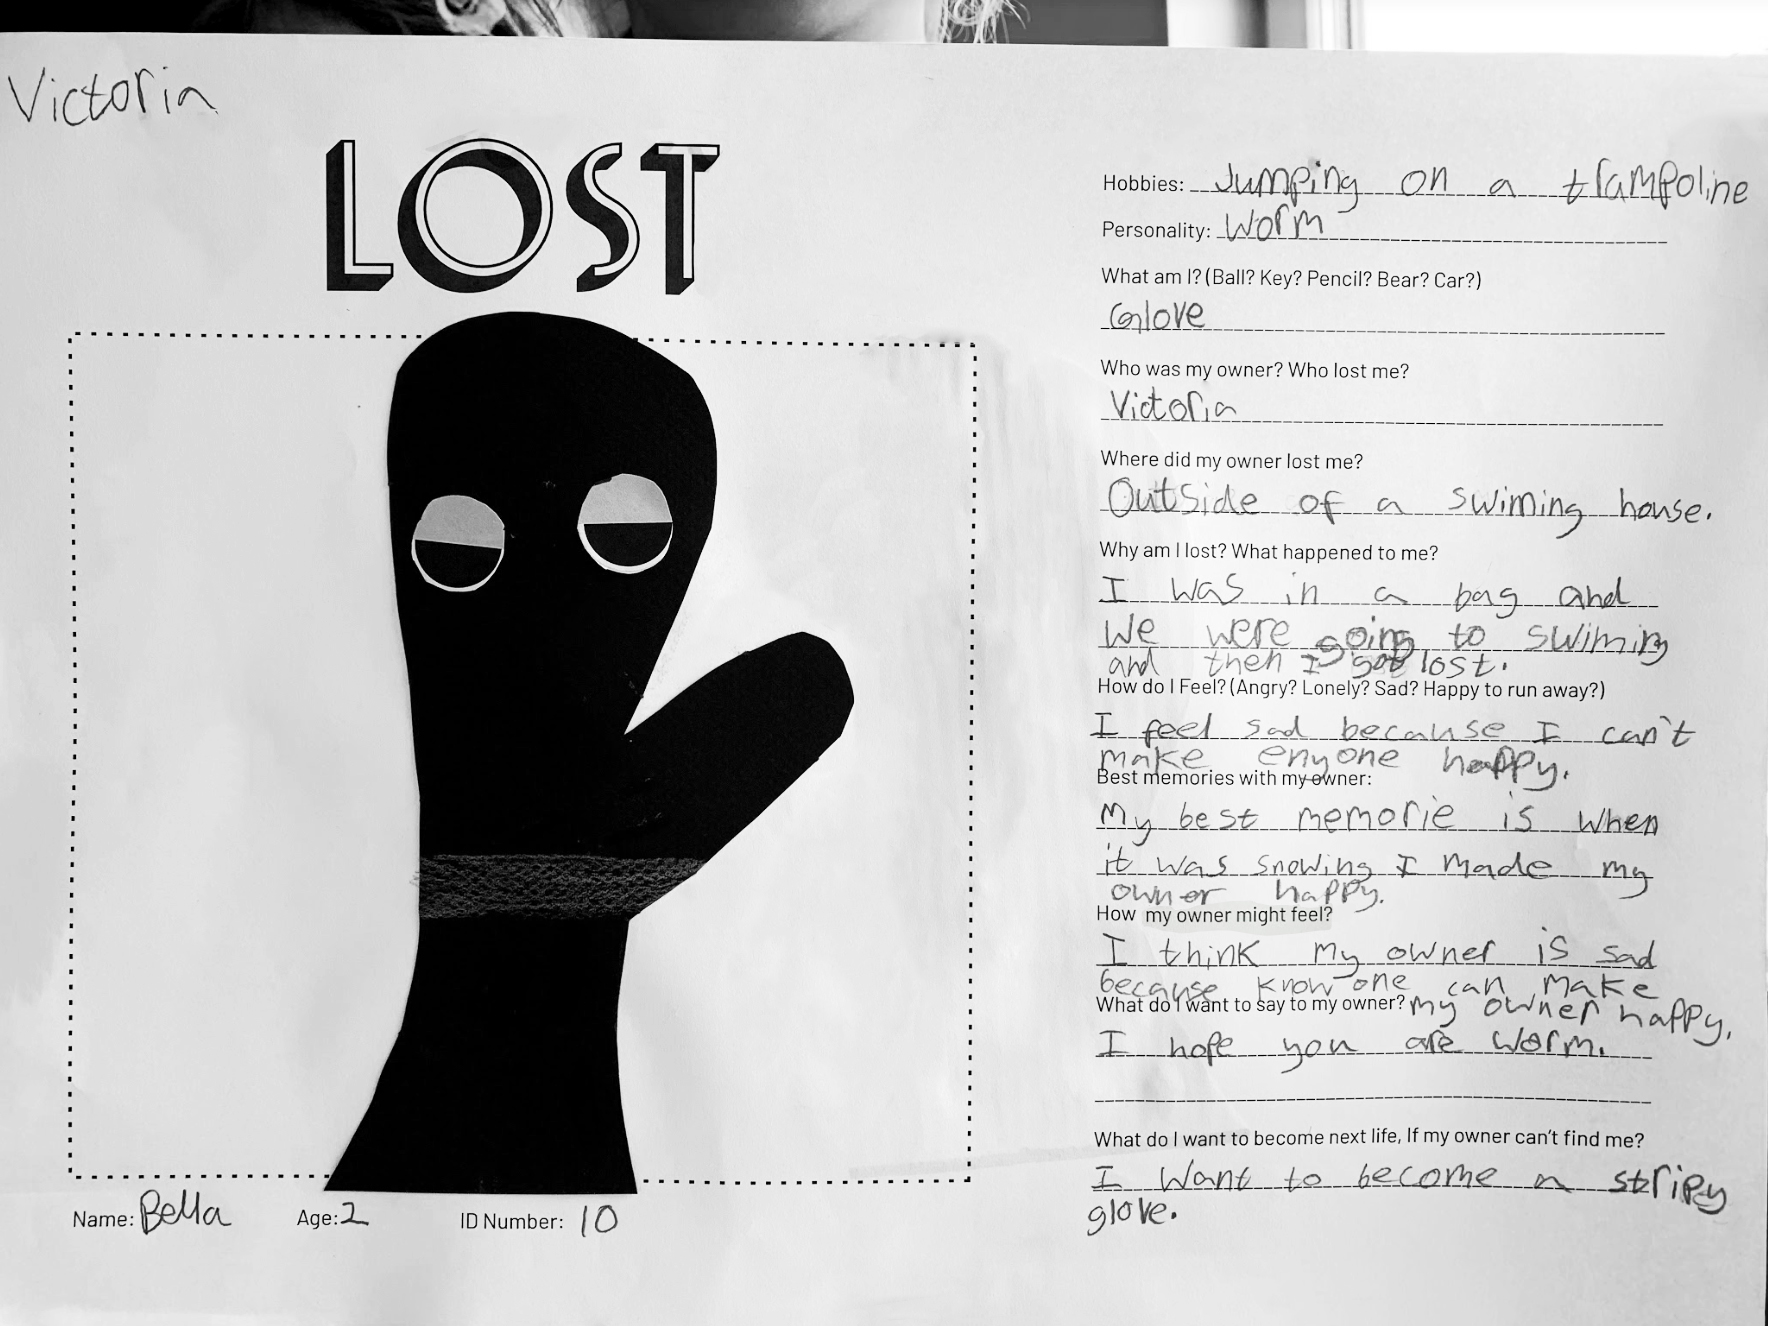 Victoria
LOST
Name: Bella Age: 2 ID Number: 10
Hobbies: Jumping on a trampoline
Personality: Worm
What am I? (Ball? Key? Pencil? Bear? Car?)
Glove
Who was my owner? Who lost me?
Victoria
Where did my owner lost me?
Outside of a swiming house.
Why am I lost? What happened to me?
I was in a bag and
We were going to swiming
and then I got lost.
How do I Feel? (Angry? Lonely? Sad? Happy to run away?)
I feel sad because I can't
make enyone happy.
Best memories with my owner:
My best memorie is when
it was snowing I made my
owner happy.
How my owner might feel?
I think my owner is sad
because know one can make
What do I want to say to my owner? my owner happy.
I hope you are worm.
What do I want to become next life, If my owner can't find me?
I Want to become a stripy
glove.